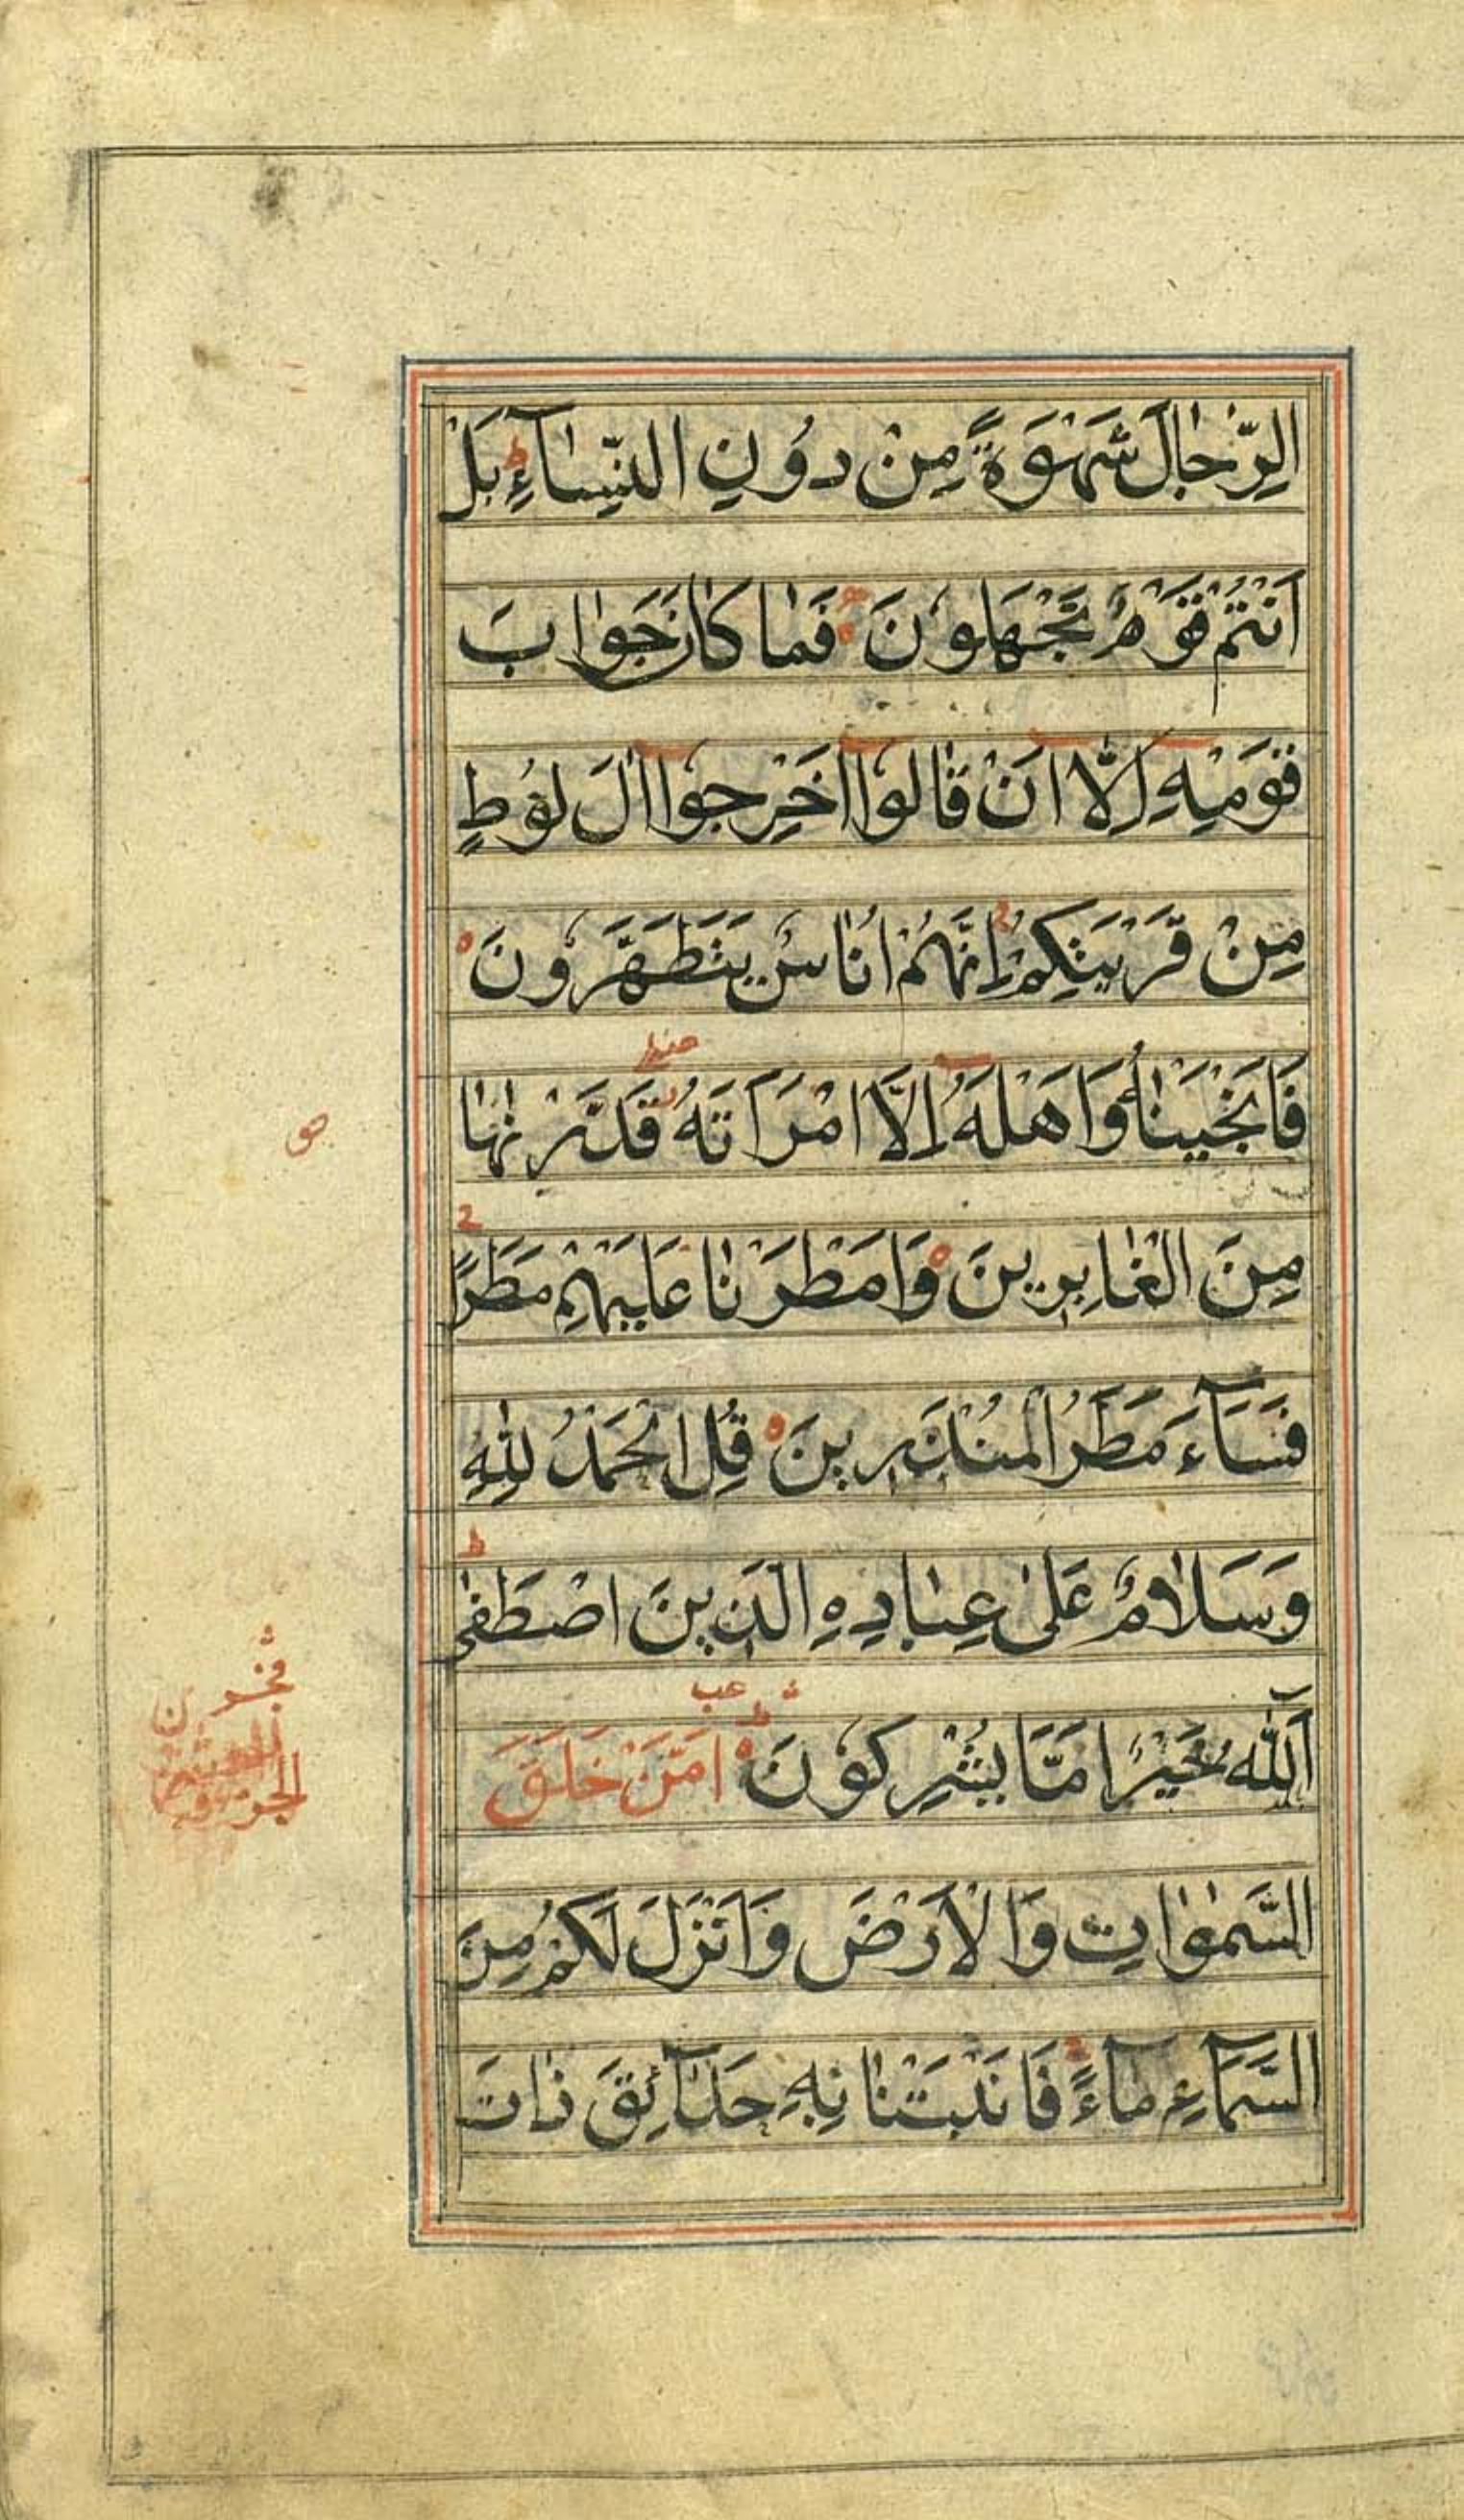 الرِّجَالَ شَهْوَةً مِنْ دُونِ النِّسَآءِ بَلْ
اَنْتُمْ قَوْمٌ تَجْهَلُونَ فَمَا كَانَ جَوَابَ
قَوْمِهِ اِلَّا اَنْ قَالُوا اَخْرِجُوا اٰلَ لُوطٍ
مِنْ قَرْيَتِكُمْ اِنَّهُمْ اُنَاسٌ يَتَطَهَّرُونَ
فَاَنْجَيْنَاهُ وَاَهْلَهُ اِلَّا امْرَاَتَهُ قَدَّرْنَاهَا
مِنَ الْغَابِرِينَ وَاَمْطَرْنَا عَلَيْهِمْ مَطَرًا
فَسَآءَ مَطَرُ الْمُنْذَرِينَ قُلِ الْحَمْدُ لِلّٰهِ
وَسَلَامٌ عَلٰى عِبَادِهِ الَّذِينَ اصْطَفٰى
آللّٰهُ خَيْرٌ اَمَّا يُشْرِكُونَ اَمَّنْ خَلَقَ
السَّمٰوَاتِ وَالْاَرْضَ وَاَنْزَلَ لَكُمْ مِنَ
السَّمَآءِ مَآءً فَاَنْبَتْنَا بِهِ حَدَآئِقَ ذَاتَ